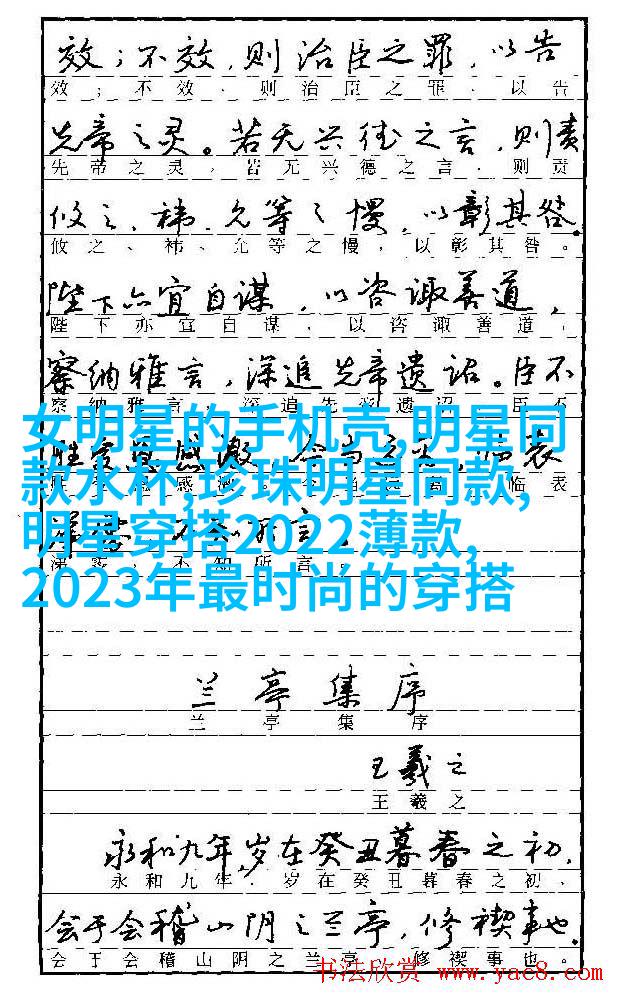 效；不效，则治臣之罪，以告
效；不效、则治臣之罪、以告
先帝之灵。若无兴德之言，则责
先帝之灵，若无兴德之言，则责
攸之、祎、允等之慢，以彰其咎。
攸之、祎、允等之慢，以彰其咎。
陛下亦宜自谋，以咨诹善道，
陛下亦宜自谋，以咨诹善道，
察纳雅言，深追先帝遗诏。臣不
察纳雅言，深追先帝遗诏 臣不
女明星的手机壳,明星同
感激 临表
款水杯,珍珠明星同款,
感激 临表
明星穿搭2022薄款,
不知所言
2023年最时尚的穿搭
兰亭集序
兰亭集序
王羲之
王羲之
永和九年,岁在癸丑暮春之初,
永和九年，岁在癸丑暮春之初、
会于会稽山阴之兰亭，修禊事也。
会于会稽山阴之兰亭 修禊事也。
书法欣赏 www.yac8.com